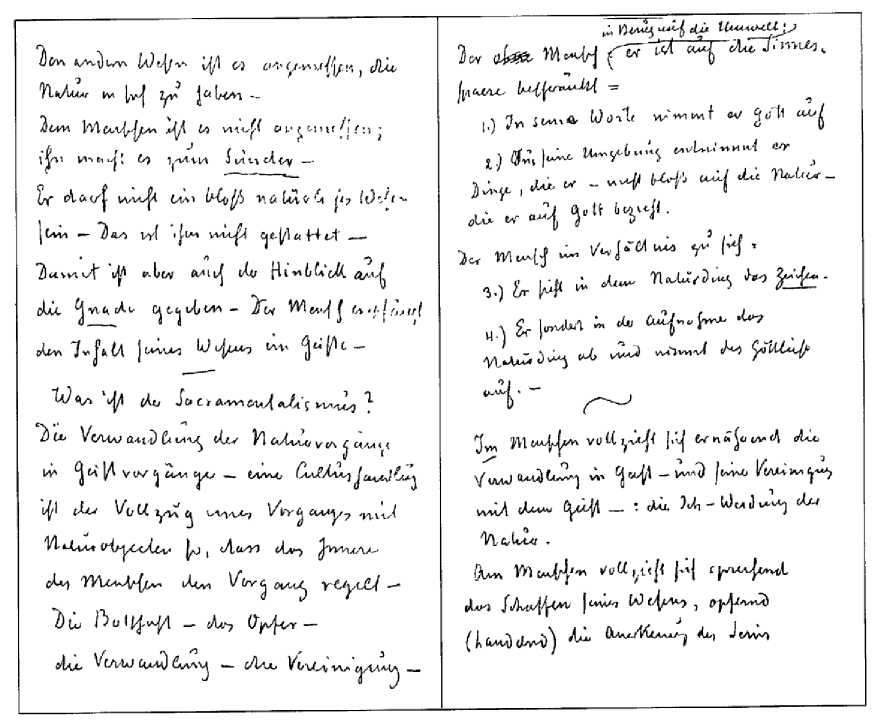 Den andern Wesen ist es angemessen, die
Natur in sich zu haben –
Dem Menschen ist es nicht angemessen;
ihn macht es zum Sünder –
Er darf nicht ein bloß natürliches Wesen
sein – Das ist ihm nicht gestattet –
Damit ist aber auch der Hinblick auf
die Gnade gegeben – Der Mensch empfängt
den Inhalt seines Wesens im Geiste –
Was ist der Sacramentalismus?
Die Verwandlung der Naturvorgänge
in Geistvorgänge – eine Cultushandlung
ist der Vollzug eines Vorganges mit
Naturobjecten so, dass das Innere
des Menschen den Vorgang regelt –
Die Botschaft – das Opfer –
die Verwandlung – die Vereinigung –
in Bezug auf die Umwelt:
Der Mensch (er ist auf die Sinnes-
sphaere beschränkt =
1.) In seine Worte nimmt er Gott auf
2.) Aus seine Umgebung entnimmt er
Dinge, die er – nicht bloß auf die Natur –
die er auf Gott bezieht.
Der Mensch im Verhältnis zu sich =
3.) Er sieht in dem Naturding das Zeichen.
4.) Er sondert in der Aufnahme das
Naturding ab und nimmt das Göttliche
auf. –
Im Menschen vollzieht sich ernährend die
Verwandlung in Geist – und seine Vereinigung
mit dem Geist – : die Ich-Werdung der
Natur.
Am Menschen vollzieht sich sprechend
das Schaffen seines Wesens, opfernd
(handelnd) die Anerkennung des Seins